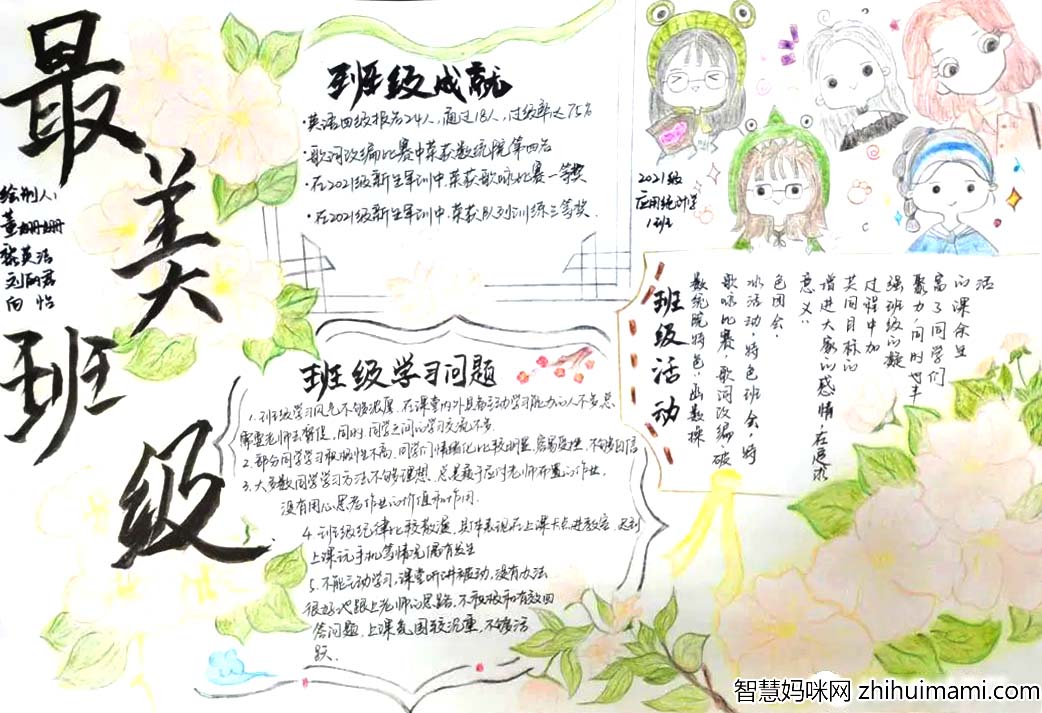 最美班级
绘制人：
董姗姗
张英洁
刘雨君
向怡
班级成就
·英语四级报名24人，通过18人，过级率达75%
·歌词改编比赛中荣获数统院第四名
·在2021级新生军训中，荣获歌咏比赛一等奖
·在2021级新生军训中，荣获队列训练三等奖．
2021级
应用统计学
1班
班级学习问题
1.班级学习风气不够浓厚，在课堂内外具有主动学习能力的人不多，总
需要老师去督促，同时，同学之间的学习交流不多
2.部分同学学习积极性不高，同学们情绪化比较明显，容易受挫，不够自信
3.大多数同学学习方法不够理想，总是疲于应付老师布置的作业，
没有用心思考作业的价值和作用.
4.班级纪律比较散漫，具体表现在上课卡点进教室，迟到
上课玩手机等情况偶有发生
5.不能主动学习，课堂听讲被动，没有办法
很好地跟上老师的思路，不积极和有效回
答问题，上课氛围较沉重，不够活
跃.
班级活动
数统院特色：函数操
歌咏比赛，歌词改编，破
冰活动，特色班会，特
色团会．
意义：
增进大家的感情，在追求
共同目标的
过程中加
强班级的凝
聚力，同时也丰
富了同学们
的课余生
活
智慧妈咪网 zhihuimami.com